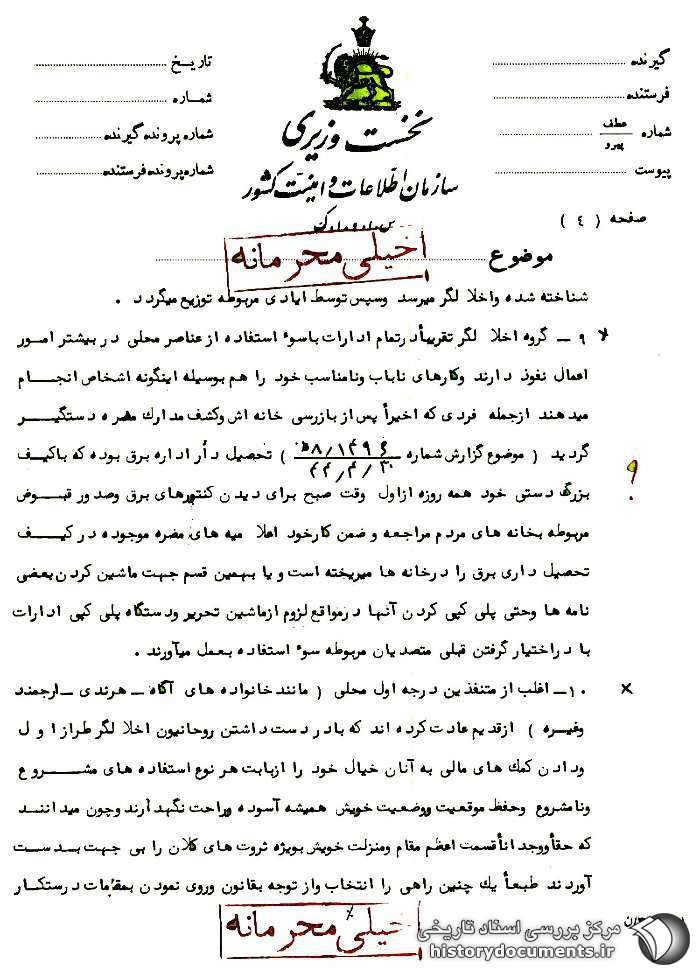 گیرنده
فرستنده
شماره عطف پیرو
پیوست
تاریخ
شماره
شماره پرونده گیرنده
شماره پرونده فرستنده
نخست وزیری
سازمان اطلاعات و امنیت کشور
س.ا.و.ا.ك
صفحه ( ٤ )
خیلی محرمانه
موضوع
شناخته شده واخلا لگر میرسد وسپس توسط ایادی مربوطه توزیع میگردد .
× ۹ ــ گروه اخلا لگر تقریبأدرتمام ادارات باسوء استفاده از عناصر محلی در بیشتر امور
اعمال نفوذ دارند وکارهای ناباب ونامناسب خود را هم بوسیله اینگونه اشخاص انجـــام
میدهند ازجمله فردی که اخیرأ پس از بازرسی خانه اش وکشف مدارك مضره دستگیــر
گردید ( موضوع گزارش شماره ) تحصیل دأر اداره برق بوده که باکیف
بزرگ دستی خود همه روزه ازاول وقت صبح برای دیدن کنتورهای برق وصدور قبــوض
مربوطه بخانه های مردم مراجعه و ضمن کارخود اعلا میه های مضره موجوده در کیــف
تحصیل داری برق را درخانه ها میریخته است و یا بهمین قسم جهت ماشین کردن بعضی
نامه ها وحتی پلی کپی کردن آنها درمواقع لزوم ازماشین تحریر ودستگاه پلی کپی ادارات
با در اختیار گرفتن قبلی متصدیان مربوطه سوء استفاده بعمل میآورند .
× ۱۰ــ اغلب از متنفذین درجه اول محلی ( مانند خانواده های آگاه ــ هرندی ــ ارجمند
وغیره ) ازقدیم عادت کرده اند که بادر دست داشتن روحانیون اخلا لگر طراز ا و ل
ودادن کمك های مالی به آنان خیال خود را ازبابت هر نوع استفاده های مشـــرو ع
ونامشروع وحفظ موقعیت ووضعیت خویش همیشه آسوده وراحت نگهدأرند وچون میداننـد
که حقأووجدانأقسمت اعظم مقام ومنزلت خویش بویژه ثروت های کلان را بی جهت بدسـت
آوردند طبعأ یك چنین راهی را انتخاب واز توجه بقانون وروی نمودن بمقامات درستکار
خیلی محرمانه
مرکز بررسی اسناد تاریخی
historydocuments.ir